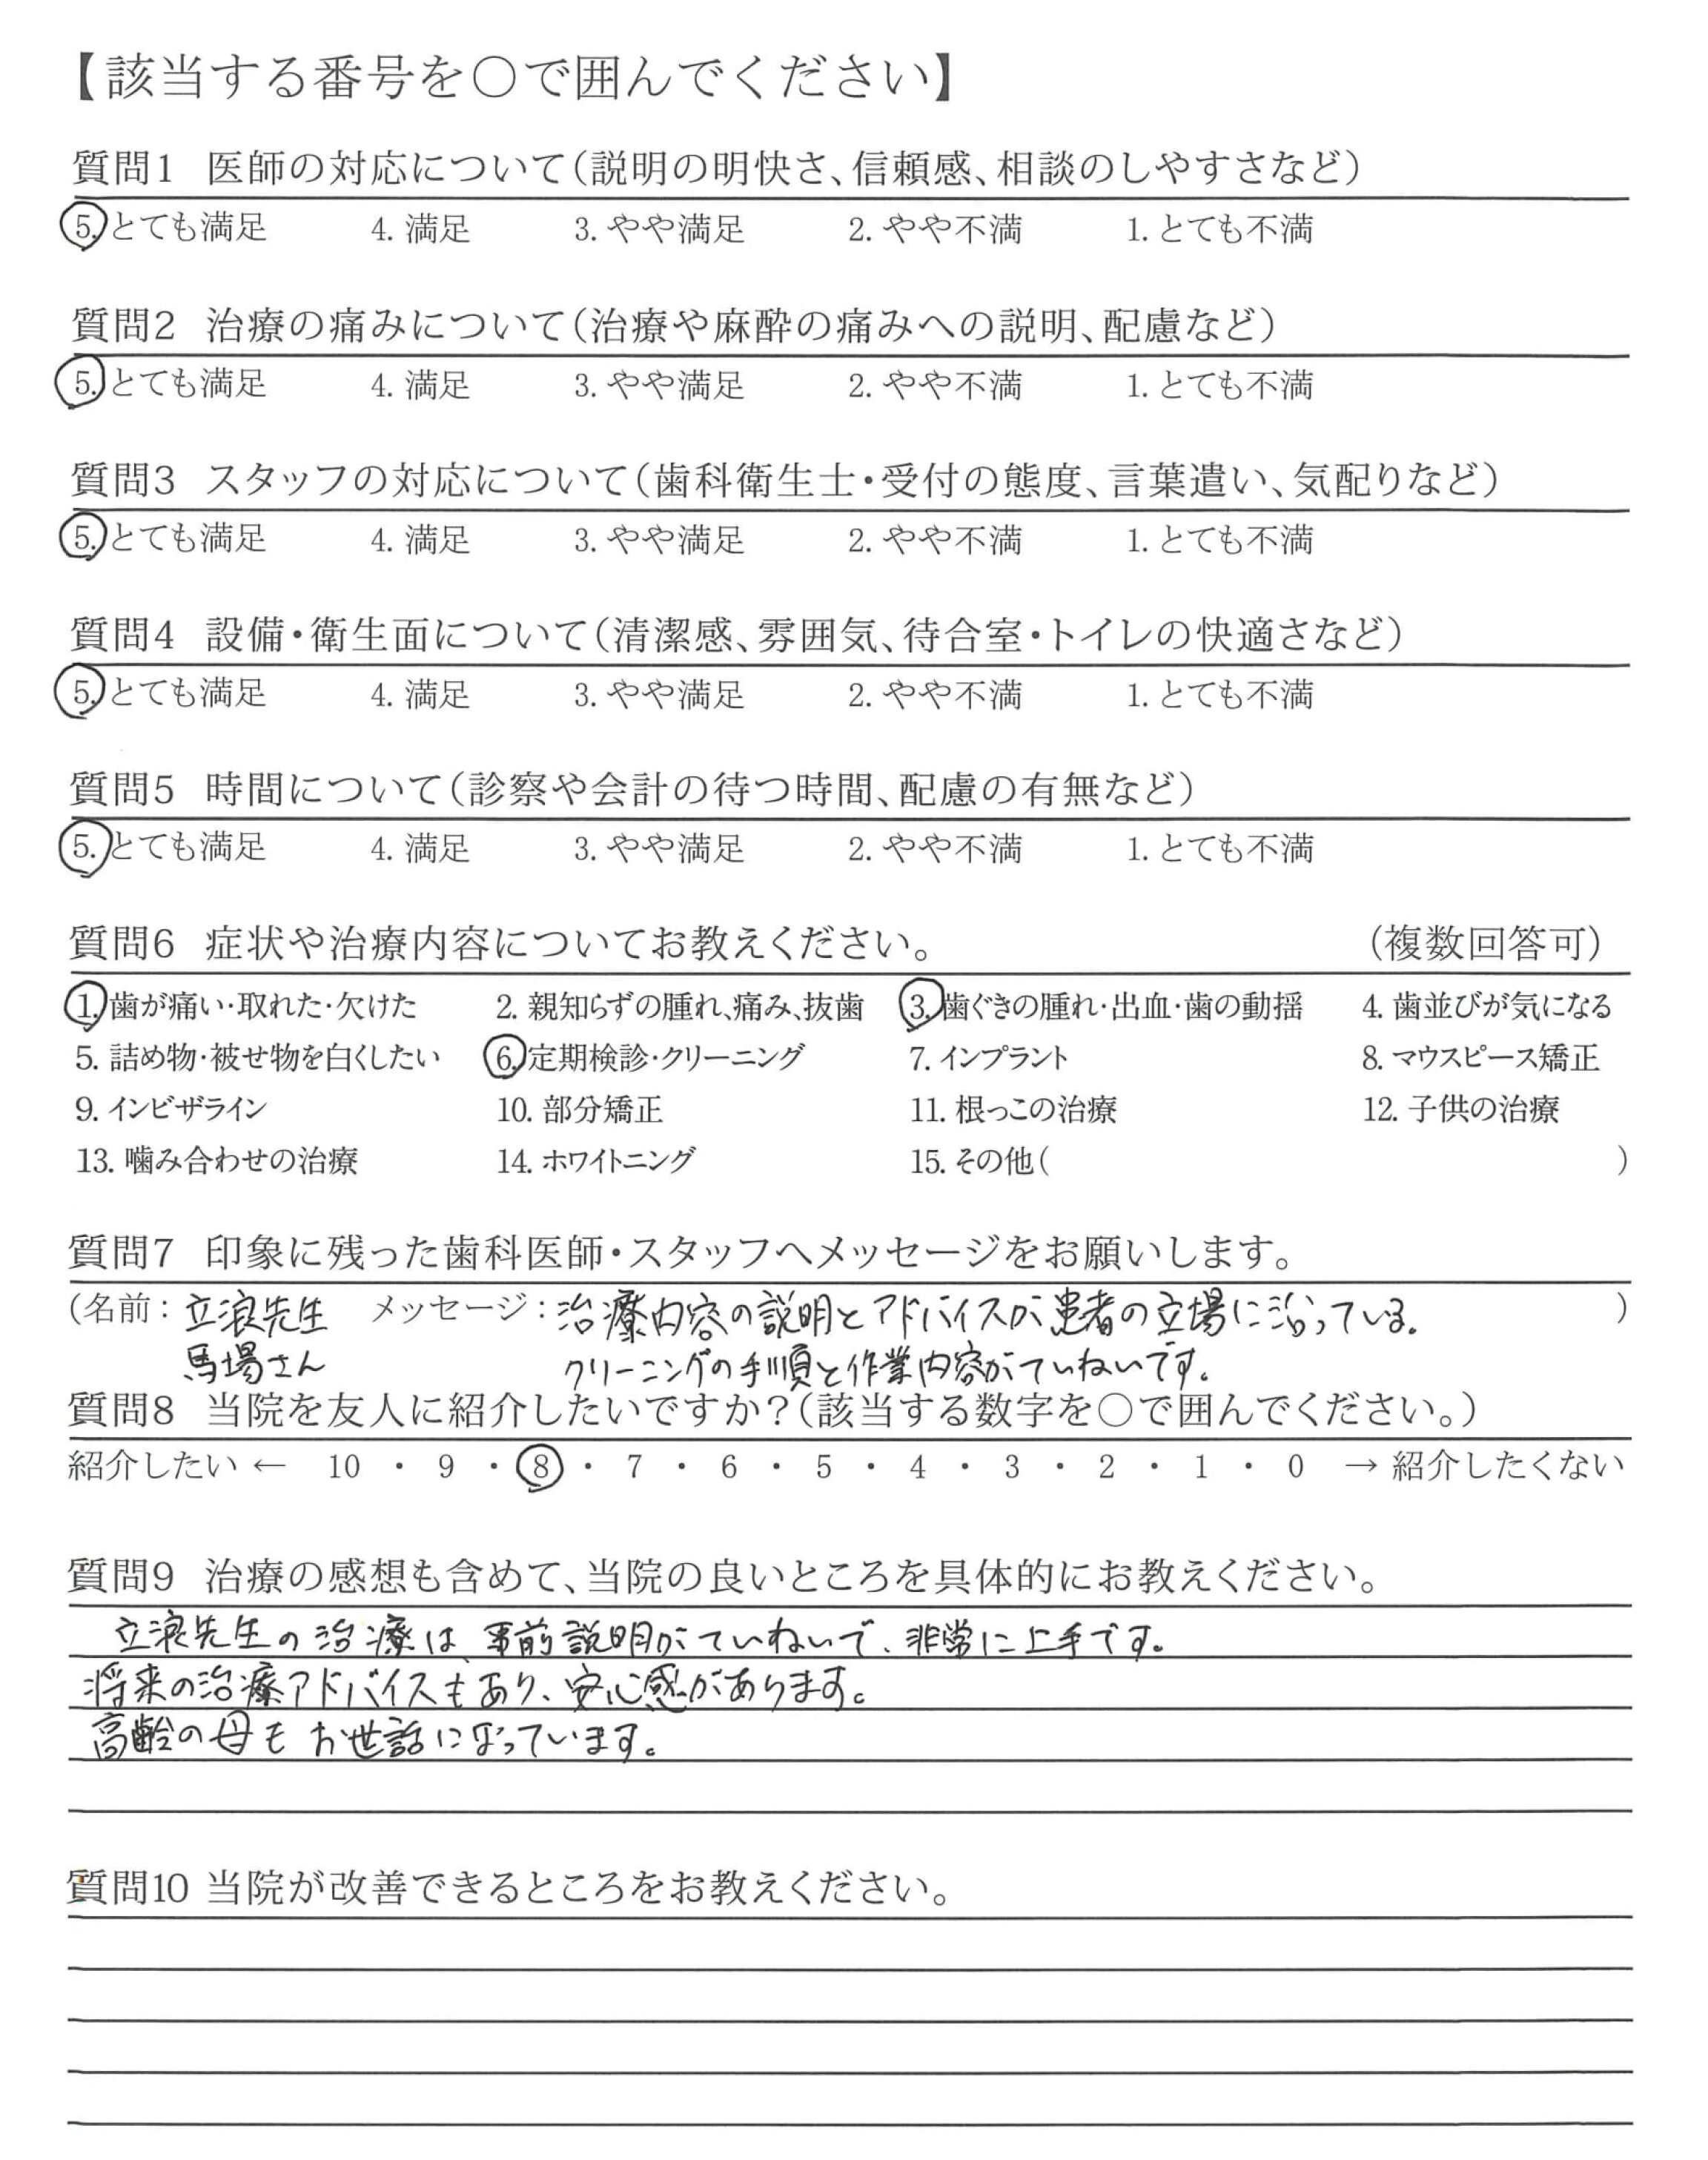 【該当する番号を〇で囲んでください】
質問1 医師の対応について(説明の明快さ、信頼感、相談のしやすさなど)
5. とても満足 4. 満足 3. やや満足 2. やや不満 1. とても不満
質問2 治療の痛みについて(治療や麻酔の痛みへの説明、配慮など)
5. とても満足 4. 満足 3. やや満足 2. やや不満 1. とても不満
質問3 スタッフの対応について(歯科衛生士・受付の態度、言葉遣い、気配りなど)
5. とても満足 4. 満足 3. やや満足 2. やや不満 1. とても不満
質問4 設備・衛生面について(清潔感、雰囲気、待合室・トイレの快適さなど)
5. とても満足 4. 満足 3. やや満足 2. やや不満 1. とても不満
質問5 時間について(診察や会計の待つ時間、配慮の有無など)
5. とても満足 4. 満足 3. やや満足 2. やや不満 1. とても不満
質問6 症状や治療内容についてお教えください。 (複数回答可)
1. 歯が痛い・取れた・欠けた 2. 親知らずの腫れ、痛み、抜歯 3. 歯ぐきの腫れ・出血・歯の動揺 4. 歯並びが気になる
5. 詰め物・被せ物を白くしたい 6. 定期検診・クリーニング 7. インプラント 8. マウスピース矯正
9. インビザライン 10. 部分矯正 11. 根っこの治療 12. 子供の治療
13. 噛み合わせの治療 14. ホワイトニング 15. その他( )
質問7 印象に残った歯科医師・スタッフへメッセージをお願いします。
(名前：立浪先生 メッセージ：治療内容の説明とアドバイスが患者の立場に沿っている。 )
馬場さん クリーニングの手順と作業内容がていねいです。
質問8 当院を友人に紹介したいですか？(該当する数字を〇で囲んでください。)
紹介したい ← 10 ・ 9 ・ 8 ・ 7 ・ 6 ・ 5 ・ 4 ・ 3 ・ 2 ・ 1 ・ 0 → 紹介したくない
質問9 治療の感想も含めて、当院の良いところを具体的にお教えください。
立浪先生の治療は、事前説明がていねいで、非常に上手です。
将来の治療アドバイスもあり、安心感があります。
高齢の母もお世話になっています。
質問10 当院が改善できるところをお教えください。